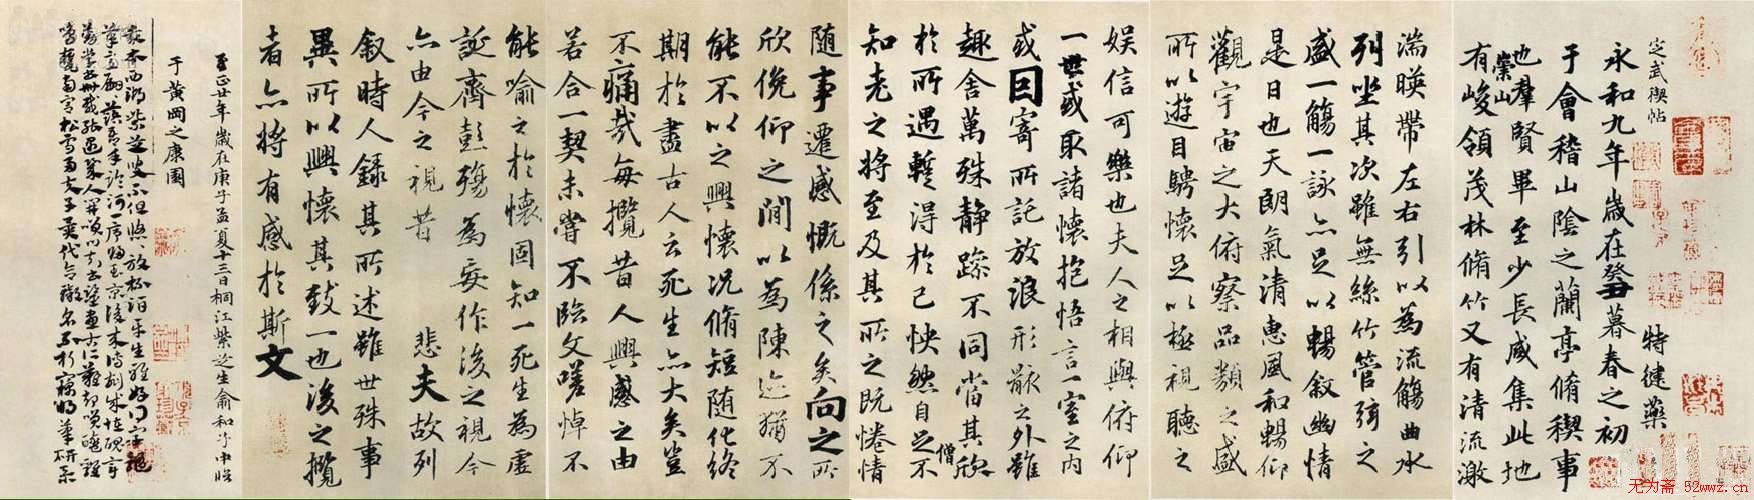 定武禊帖
特健藥
永和九年歲在癸丑暮春之初
于會稽山陰之蘭亭脩禊事
也羣賢畢至少長咸集此地
有崇山峻領茂林脩竹又有清流激
湍暎帶左右引以為流觴曲水
列坐其次雖無絲竹管弦之
盛一觴一詠亦足以暢敘幽情
是日也天朗氣清惠風和暢仰
觀宇宙之大俯察品類之盛
所以遊目騁懷足以極視聽之
娛信可樂也夫人之相與俯仰
一世或取諸懷抱悟言一室之內
或因寄所託放浪形骸之外雖
趣舍萬殊靜躁不同當其欣
於所遇蹔得於己怏然自足不
僧
知老之將至及其所之既惓情
隨事遷感慨係之矣向之所
欣俛仰之閒以為陳迹猶不
能不以之興懷況脩短隨化終
期於盡古人云死生亦大矣豈
不痛哉每攬昔人興感之由
若合一契未嘗不臨文嗟悼不
能喻之於懷固知一死生為虛
誕齊彭殤為妄作後之視今
亦由今之視昔 悲夫故列
敘時人錄其所述雖世殊事
異所以興懷其致一也後之攬
者亦將有感於斯文
至正廿年歲在庚子孟夏十三日桐江紫芝生俞和子中臨
于黃岡之康園
无为斋 52wwz.cn